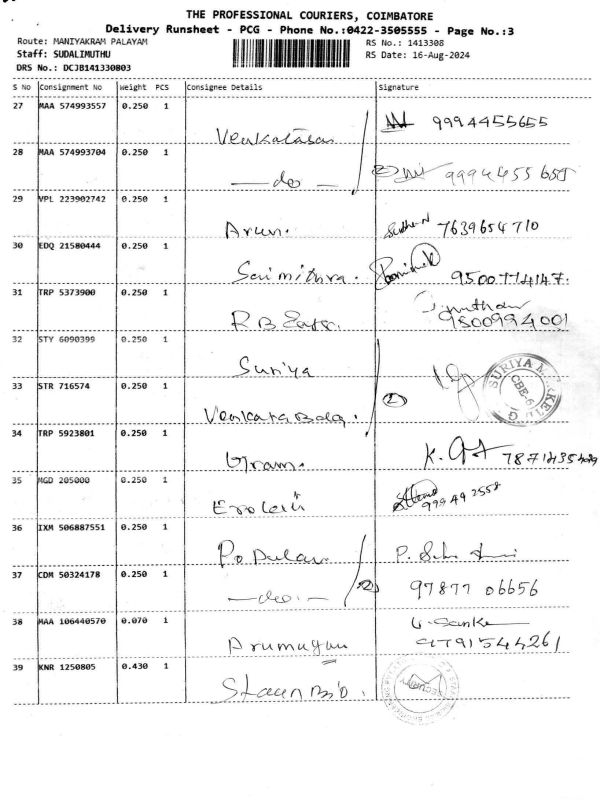 THE PROFESSIONAL COURIERS, COIMBATORE
Delivery Runsheet - PCG - Phone No.:0422-3505555 - Page No.:3
Route: MANIYAKRAM PALAYAM
RS No.: 1413308
Staff: SUDALIMUTHU
RS Date: 16-Aug-2024
DRS No.: DCJB141330803
S No Consignment No Weight PCS Consignee Details Signature
27 MAA 574993557 0.250 1
Venkatasan 9994455655
28 MAA 574993704 0.250 1
do 9994455655
29 VPL 223902742 0.250 1
Arun. 7639654710
30 EDQ 21580444 0.250 1
Saimithra. 9500774147.
31 TRP 5373900 0.250 1
R B 9500994001
32 STY 6090399 0.250 1
Suriya
33 STR 716574 0.250 1
SURIYA CBE-6
34 TRP 5923801 0.250 1
K.
35 MGD 205000 0.250 1
36 IXM 506887551 0.250 1
Popular. P.
37 CDM 50324178 0.250 1
do. 2 97877 06656
38 MAA 106440570 0.070 1
Arumugam 9791544261
39 KNR 1250805 0.430 1
SECURITY